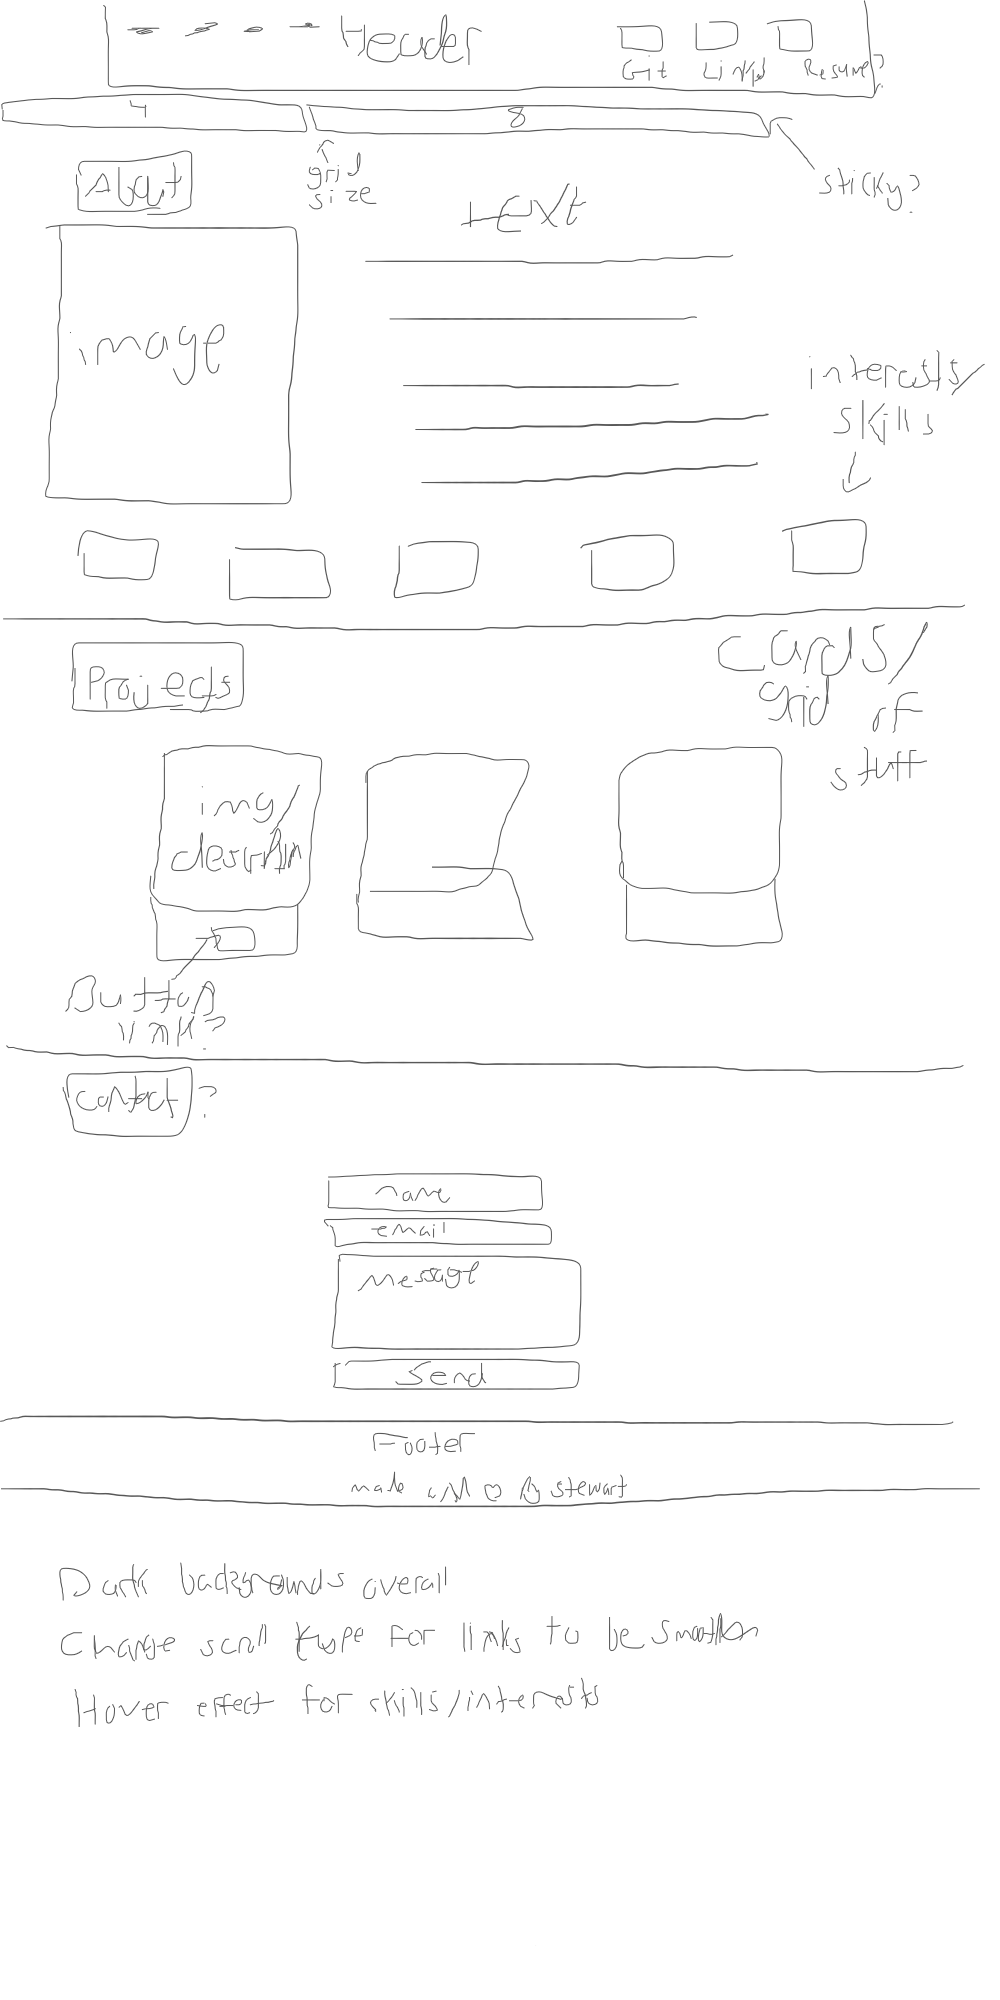 Header
Git Linkd Resume?
4 8
grid
size
sticky?
About
text
image
interests/
skills
Projects
cards/
grid of
stuff
img/
Button
link?
contact ?
name
email
message
Send
Footer
made w/ ♡ by stewart
Dark backgrounds overall
Change scroll type for links to be smooth
Hover effect for skills/interests